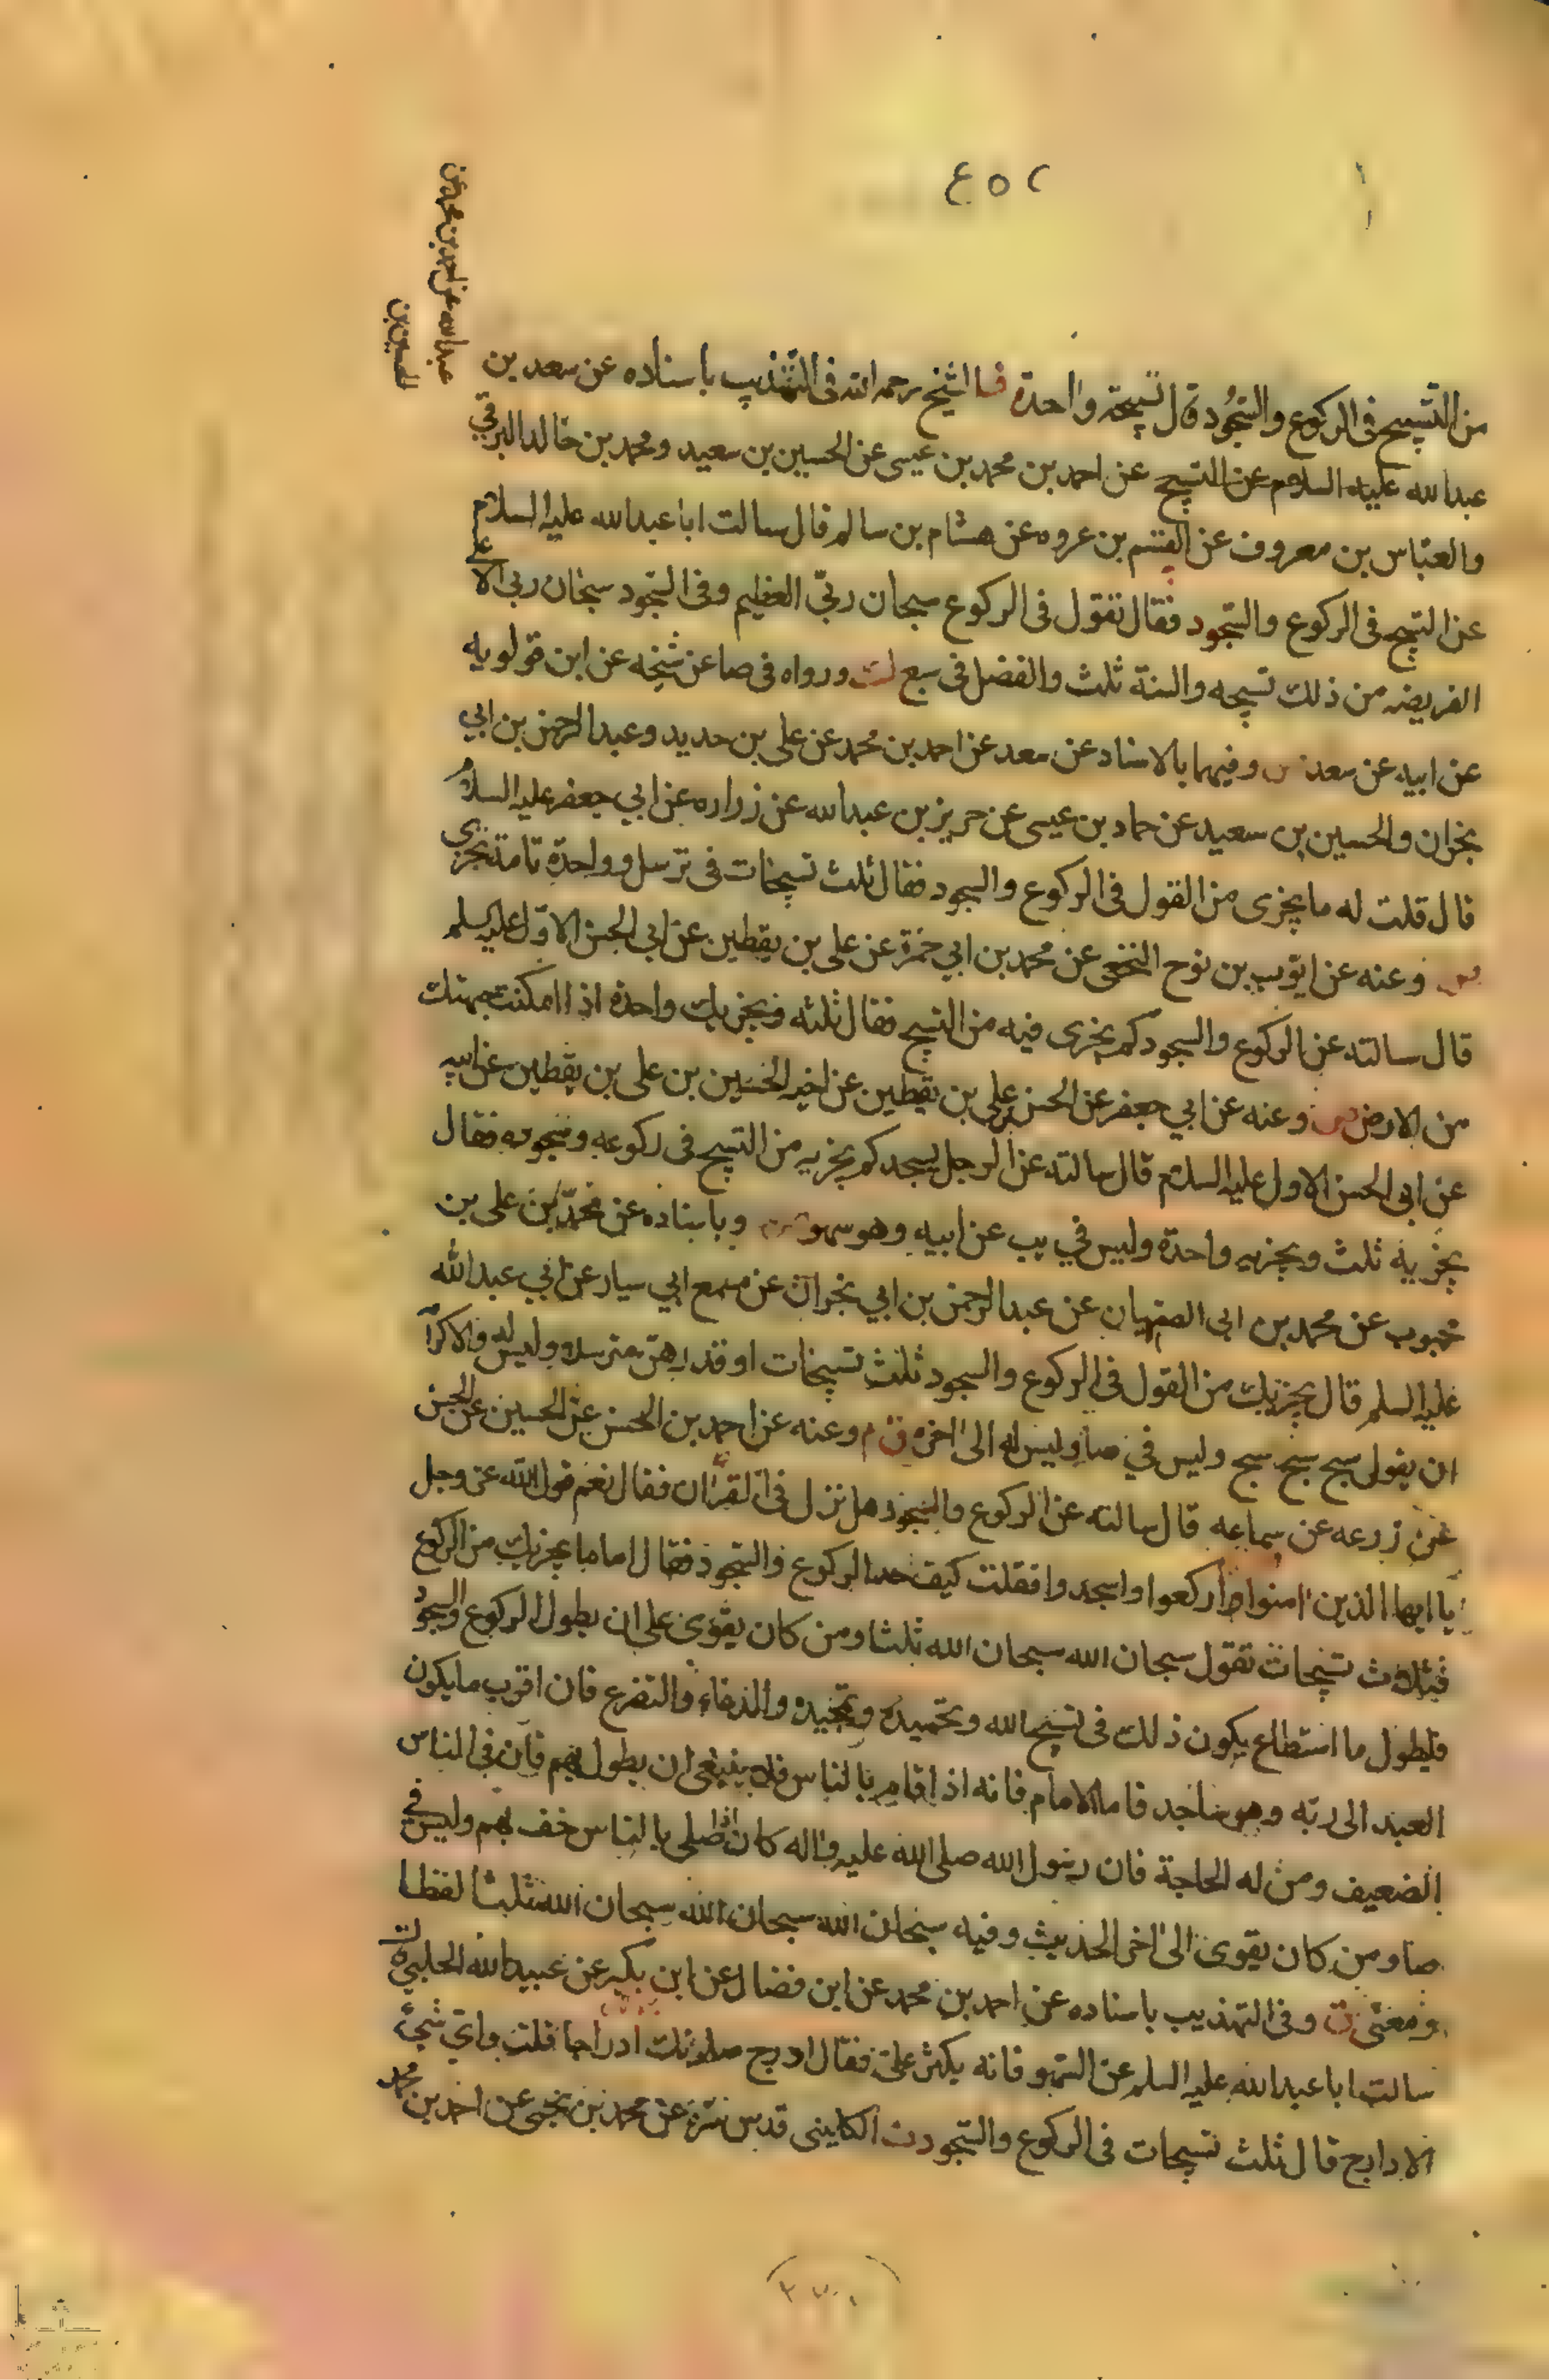 ٤٥٢
عبدالله عن احمد بن محمد عن
الحسين بن
من التسبيح فى الركوع والسجود قال تسبيحة واحدة الشيخ رحمه الله فى التهذيب باسناده عن سعد بن
عبدالله عليه السلام عن التسبيح عن احمد بن محمد بن عيسى عن الحسين بن سعيد ومحمد بن خالد البرقي
والعباس بن معروف عن القسم بن عروه عن هشام بن سالم قال سالت ابا عبدالله عليه السلام
عن التسبيح فى الركوع والسجود فقال تقول فى الركوع سبحان ربّي العظيم وفى السجود سبحان ربى الاعلى
الفريضه من ذلك تسبيحه والسنة ثلث والفضل فى سبع لت ورواه فى صا عن شيخه عن ابن قولويه
عن ابيه عن سعد وفيهما بالاسناد عن سعد عن احمد بن محمد عن على بن حديد وعبد الرحمن بن ابي
نجران والحسين بن سعيد عن حماد بن عيسى عن حريز بن عبدالله عن زراره عن ابي جعفر عليه السلام
قال قلت له ما يجزى من القول فى الركوع والسجود فقال ثلث تسبيحات فى ترسل وواحدة تامة تجزى
وعنه عن ايوب بن نوح النخعى عن محمد بن ابي حمزة عن على بن يقطين عن ابي الحسن الاول عليه السلم
قال سالته عن الركوع والسجود كم يجزى فيه من التسبيح فقال ثلثه ويجزيك واحدة اذا امكنت جبهتك
من الارض وعنه عن ابي جعفر عن الحسن بن على بن يقطين عن اخيه الحسين بن على بن يقطين عن ابيه
عن ابى الحسن الاول عليه السلام قال سالته عن الرجل يسجد كم يجزيه من التسبيح فى ركوعه وسجوده فقال
يجزيه ثلث ويجزيه واحدة وليس في يب عن ابيه وهو سهو وباسناده عن محمد بن على بن
محبوب عن محمد بن ابى الصهبان عن عبد الرحمن بن ابي نجران عن مسمع ابي سيار عن ابي عبدالله
عليه السلم قال يجزيك من القول فى الركوع والسجود ثلث تسبيحات او قدرهن مترسلا وليس له ولا كرامة
ان يقول سبح سبح سبح وليس في صا وليس له الى اخره وعنه عن احمد بن الحسن عن الحسين عن الحسن
عن زرعه عن سماعه قال سالته عن الركوع والسجود هل نزل فى القران فقال نعم قول الله عز وجل
يا ايها الذين امنوا اركعوا واسجدوا فقلت كيف حد الركوع والسجود فقال اما ما يجزيك من الركوع
فثلاث تسبيحات تقول سبحان الله سبحان الله ثلثا ومن كان يقوى على ان يطول الركوع والسجود
فليطول ما استطاع يكون ذلك فى تسبيح الله وتحميده وتمجيده والدعاء والتضرع فان اقرب ما يكون
العبد الى ربّه وهو ساجد فاما الامام فانه اذا قام بالناس فلا ينبغى ان يطول بهم فان فى الناس
الضعيف ومن له الحاجة فان رسول الله صلى الله عليه واله كان اذا صلى بالناس خف بهم وليس في
صا ومن كان يقوى الى اخر الحديث وفيه سبحان الله سبحان الله سبحان الله ثلثا لفظا
ومعنى وفى التهذيب باسناده عن احمد بن محمد عن ابن فضال عن ابن بكير عن عبيد الله الحلبي
سالت ابا عبدالله عليه السلم عن السهو فانه يكثر على فقال ادرج صلوتك ادراجا قلت واى شيء
الادراج قال ثلث تسبيحات فى الركوع والسجود الكليني قدس سره عن محمد بن يحيى عن احمد بن محمد